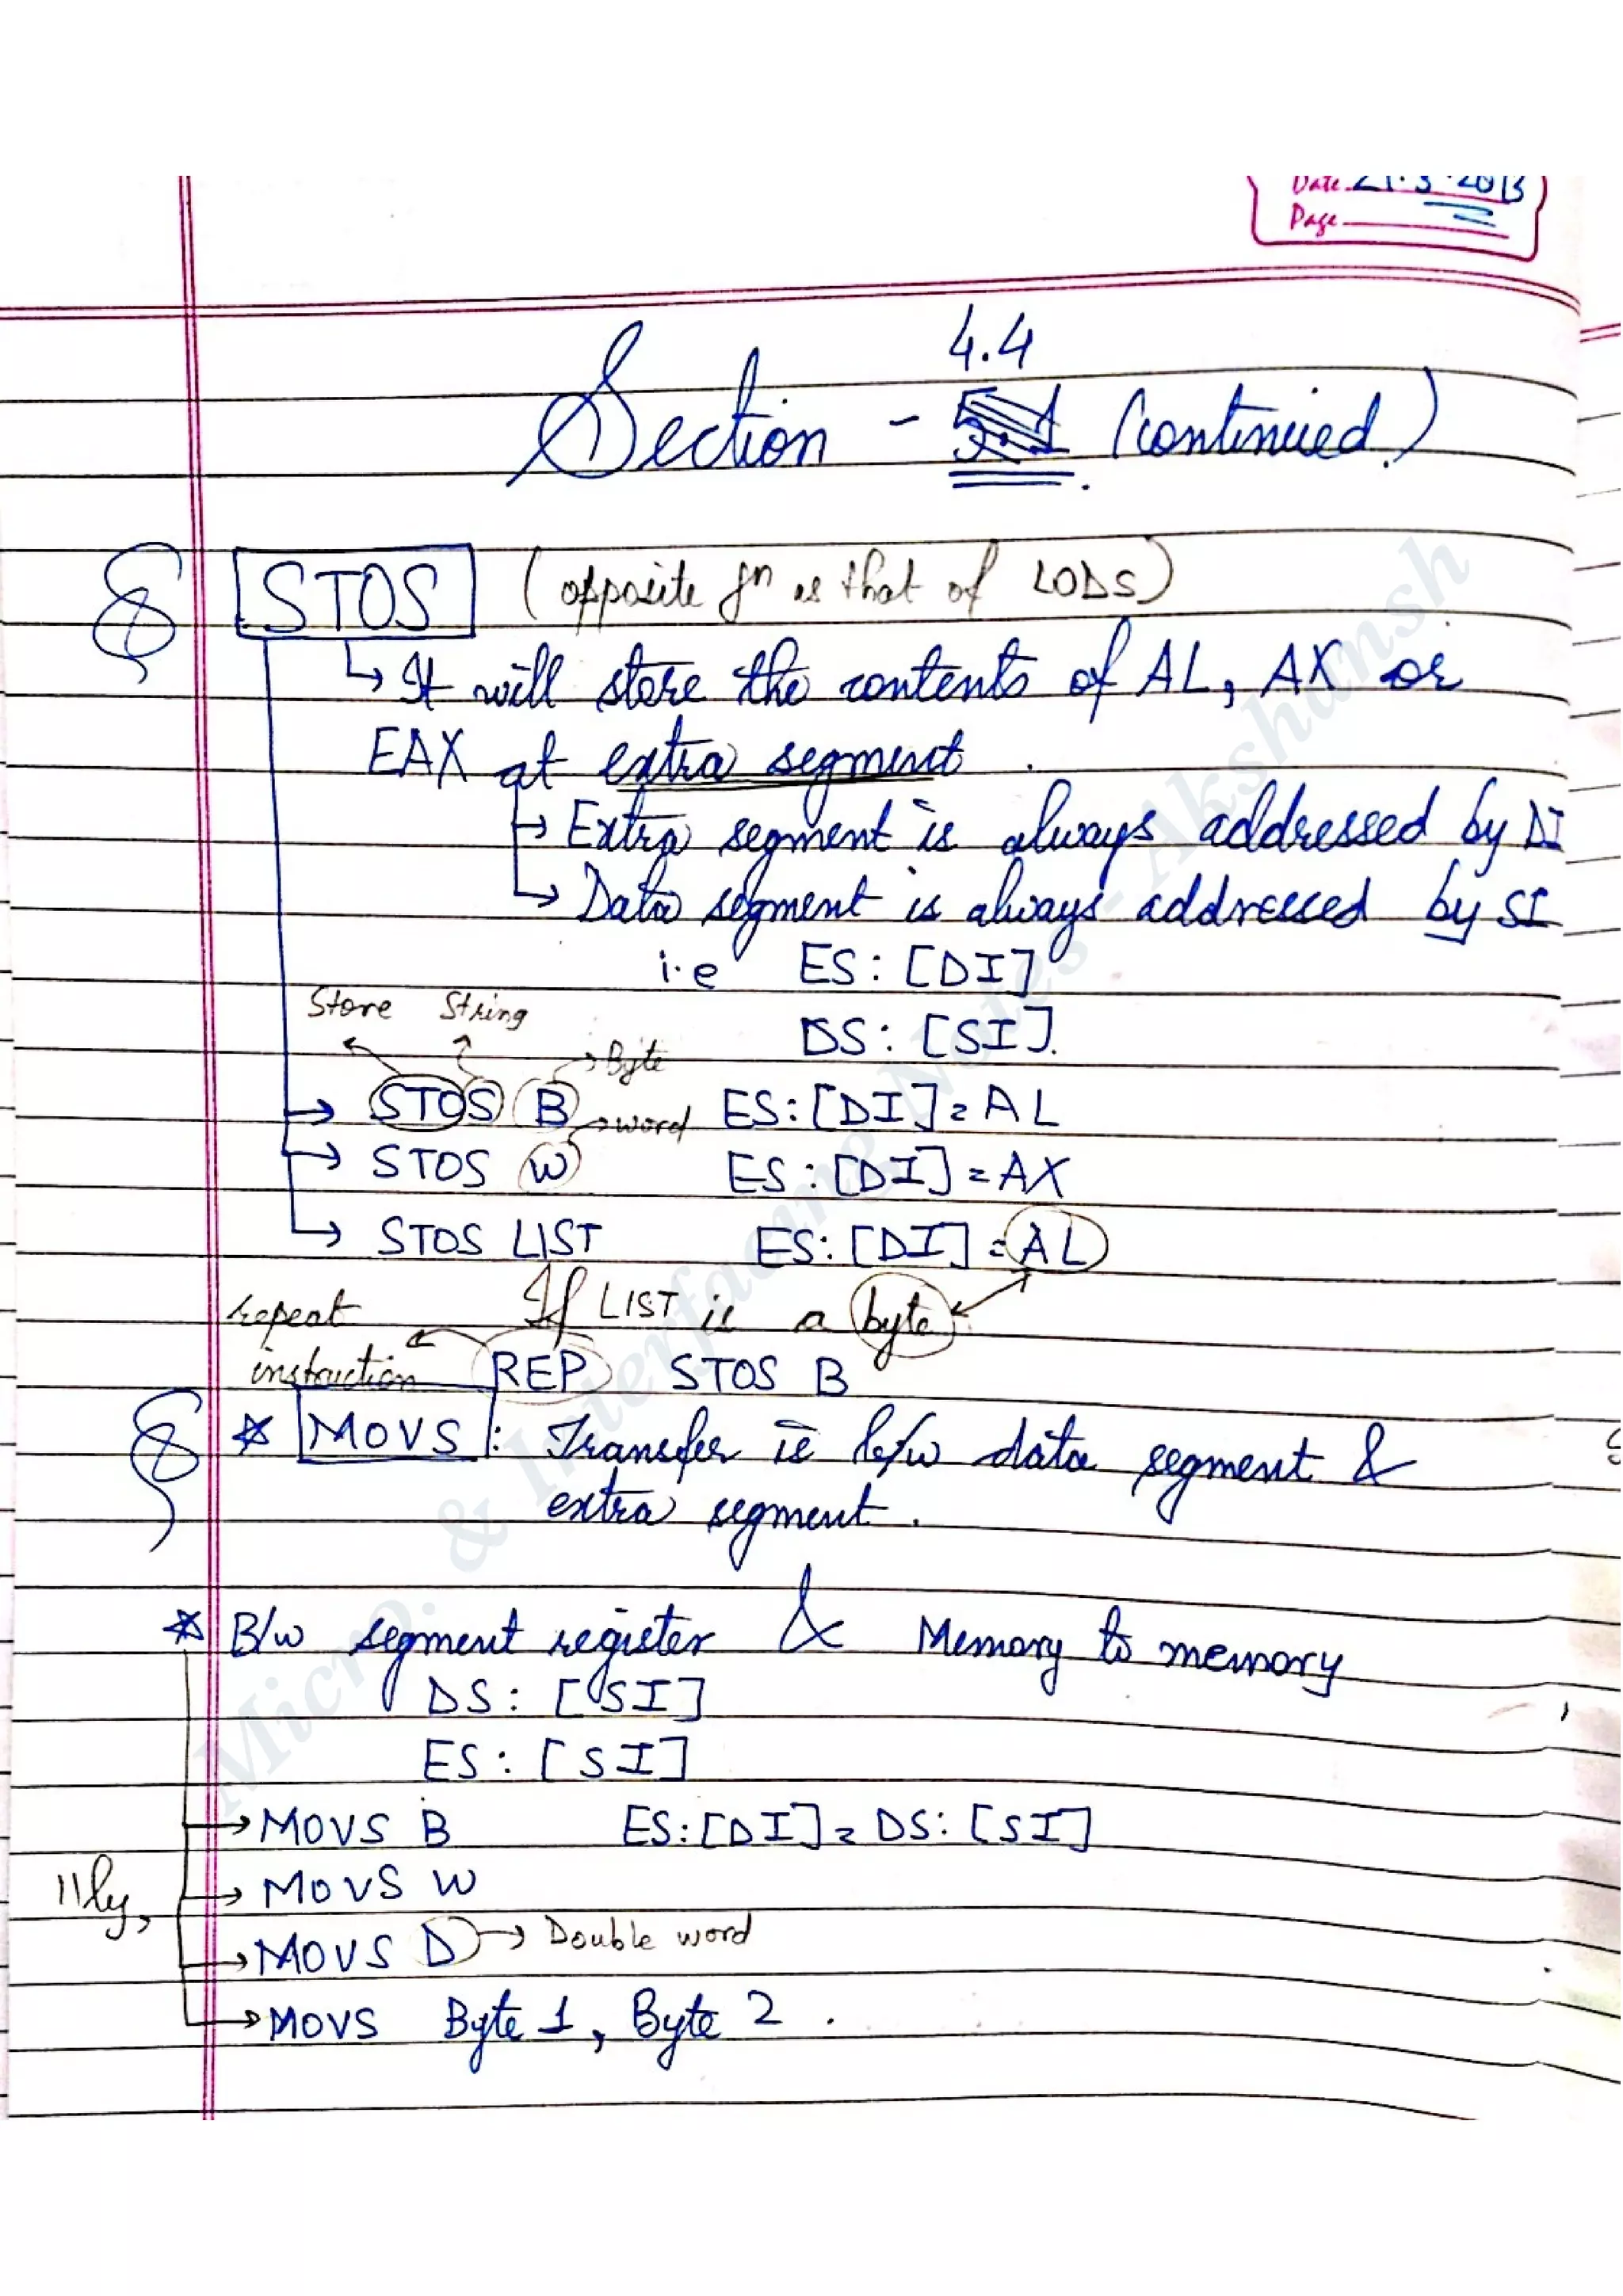 Date 21.3.2013
Page
4.4
Section - 5.1 (continued.)
STOS (opposite fn as that of LODS)
↳ It will store the contents of AL, AX or
EAX at extra segment.
↳ Extra segment is always addressed by DI
↳ Data segment is always addressed by SI
i.e ES: [DI]
DS: [SI].
Store String
→ Byte
→ STOS B ES:[DI] = AL
→ word
→ STOS W ES:[DI] = AX
↳ STOS LIST ES:[DI] = AL
If LIST is a byte
repeat
instruction REP STOS B
* MOVS : Transfer is b/w data segment &
extra segment.
* B/w segment register & Memory to memory
DS: [SI]
ES: [SI]
→ MOVS B ES:[DI] = DS:[SI]
||ly, → MOVS W
→ MOVS D → Double word
→ MOVS Byte 1, Byte 2.
Micro. & Interfacing Notes - Akshansh